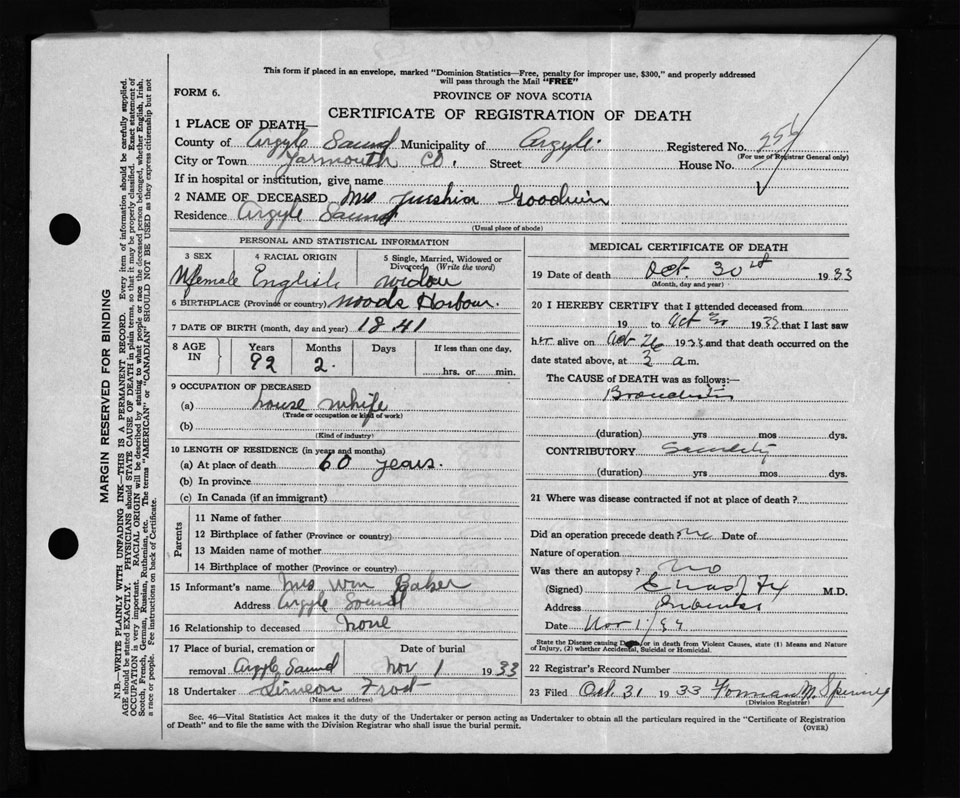 This form if placed in an envelope, marked "Dominion Statistics—Free, penalty for improper use, $300," and properly addressed
will pass through the Mail "FREE"
FORM 6.
PROVINCE OF NOVA SCOTIA
CERTIFICATE OF REGISTRATION OF DEATH
1 PLACE OF DEATH—
County of Argyle Sound Municipality of Argyle. Registered No.
(For use of Registrar General only)
City or Town Yarmouth Co. Street House No.
If in hospital or institution, give name
2 NAME OF DECEASED Mrs Goodwin
Residence Argyle Sound
(Usual place of abode)
PERSONAL AND STATISTICAL INFORMATION
3 SEX 4 RACIAL ORIGIN 5 Single, Married, Widowed or Divorced (Write the word)
female English widow
6 BIRTHPLACE (Province or country) Woods Harbour.
7 DATE OF BIRTH (month, day and year) 1841
8 AGE IN Years Months Days If less than one day,
92 2. hrs. or min.
9 OCCUPATION OF DECEASED
(a) house whife
(Trade or occupation or kind of work)
(b)
(Kind of industry)
10 LENGTH OF RESIDENCE (in years and months)
(a) At place of death 60 years.
(b) In province
(c) In Canada (if an immigrant)
Parents
11 Name of father
12 Birthplace of father (Province or country)
13 Maiden name of mother
14 Birthplace of mother (Province or country)
15 Informant's name Mrs Wm Baker
Address Argyle Sound
16 Relationship to deceased None
17 Place of burial, cremation or removal Date of burial
Argyle Sound Nov 1 1933
18 Undertaker Simeon Frost
(Name and address)
MEDICAL CERTIFICATE OF DEATH
19 Date of death Oct. 30 1933
(Month, day and year)
20 I HEREBY CERTIFY that I attended deceased from
19 to Oct 30 1933 that I last saw
her alive on Oct 26 1933 and that death occurred on the
date stated above, at 3 a.m.
The CAUSE OF DEATH was as follows:—
Bronchitis
(duration) yrs mos dys.
CONTRIBUTORY Senility
(duration) yrs mos dys.
21 Where was disease contracted if not at place of death?
Did an operation precede death? no Date of
Nature of operation
Was there an autopsy? no
(Signed) M.D.
Address
Date Nov 1/33
State the Disease causing Death, or in death from Violent Causes, state (1) Means and Nature
of Injury, (2) whether Accidental, Suicidal or Homicidal.
22 Registrar's Record Number
23 Filed Oct. 31 1933 Forman M. Spinney
(Division Registrar)
Sec. 46—Vital Statistics Act makes it the duty of the Undertaker or person acting as Undertaker to obtain all the particulars required in the "Certificate of Registration
of Death" and to file the same with the Division Registrar who shall issue the burial permit.
(OVER)
MARGIN RESERVED FOR BINDING
N.B.—WRITE PLAINLY WITH UNFADING INK—THIS IS A PERMANENT RECORD. Every item of information should be carefully supplied.
AGE should be stated EXACTLY. PHYSICIANS should STATE CAUSE OF DEATH in plain terms, so that it may be properly classified. Exact statement of
OCCUPATION is very important. RACIAL ORIGIN will be described by stating to what people or race the deceased person belonged, whether English, Irish,
Scotch, French, German, Russian, Ruthenian, etc. The terms "AMERICAN" or "CANADIAN" SHOULD NOT BE USED as they express citizenship but not
a race or people. See instructions on back of Certificate.